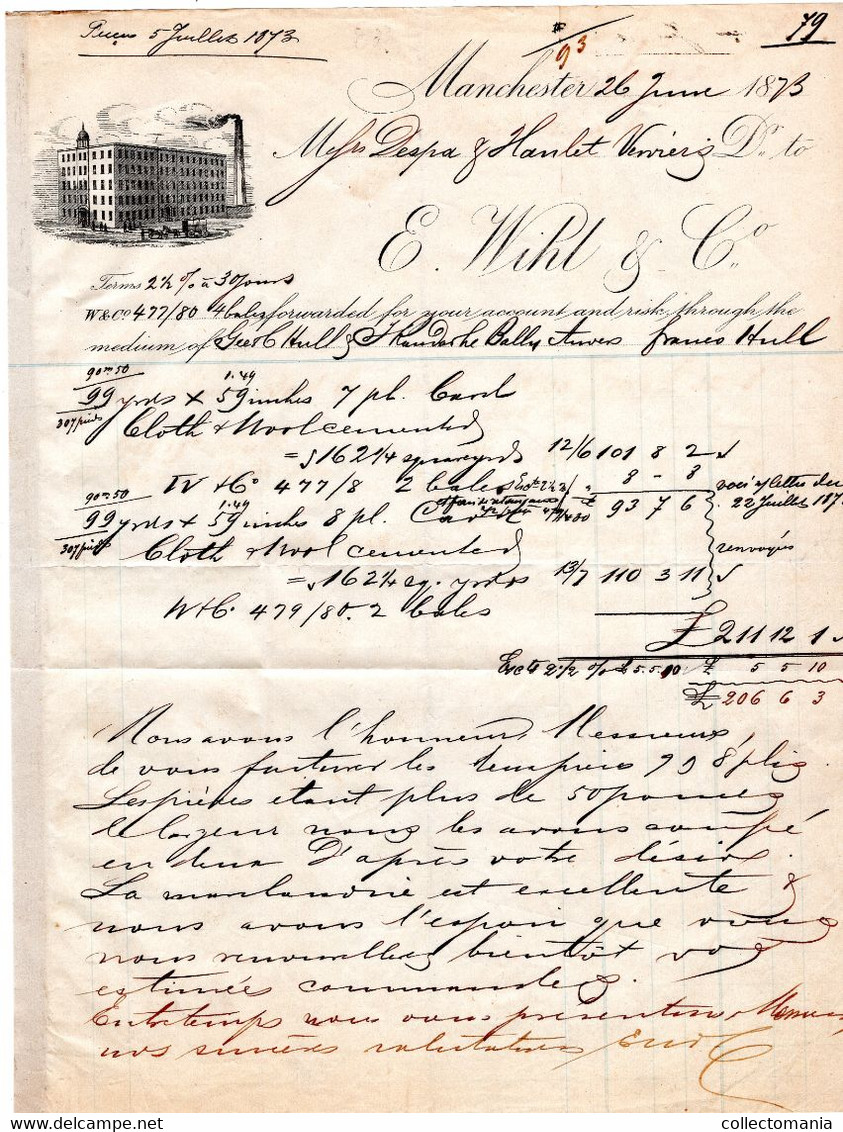 Reçue 5 Juillet 1873
93
79
Manchester 26 June 1873
Messrs Despa & Hanlet Verviers Dr. to
E. Wihl & Co.
Terms 2½ % à 30 jours
W & Co 477/80 4 bales forwarded for your account and risk through the
medium of Hull & Anvers franco Hull
90m 50 1.49
99 yrds x 59 inches 7 pl. Card
307 pieds
Cloth & Wool cemented
= 162¼ square yrds 12/6 101 8 2
W & Co 477/8 2 bales 8 - 8
voir lettre du
22 Juillet 187
93 7 6
90m 50 1.49
99 yrds x 59 inches 8 pl. Card
307 pieds
Cloth & Wool cemented
renvoyés
= 162¼ sq. yrds 13/7 110 3 11
W & Co. 479/80. 2 bales
£ 211 12 1
Escte 2½ % £ 5.5.10 £ 5 5 10
£ 206 6 3
Nous avons l'honneur, Messieurs,
de vous facturer les 7 & 8 plis.
Les pièces étant plus de 50 pouces
de largeur nous les avons coupé
en deux D'après votre désir.
La marchandise est excellente &
nous avons l'espoir que vous
nous renouvellerez bientôt vos
estimées commandes.
Entretemps nous vous présentons, Messieurs,
nos sincères salutations
collectomania